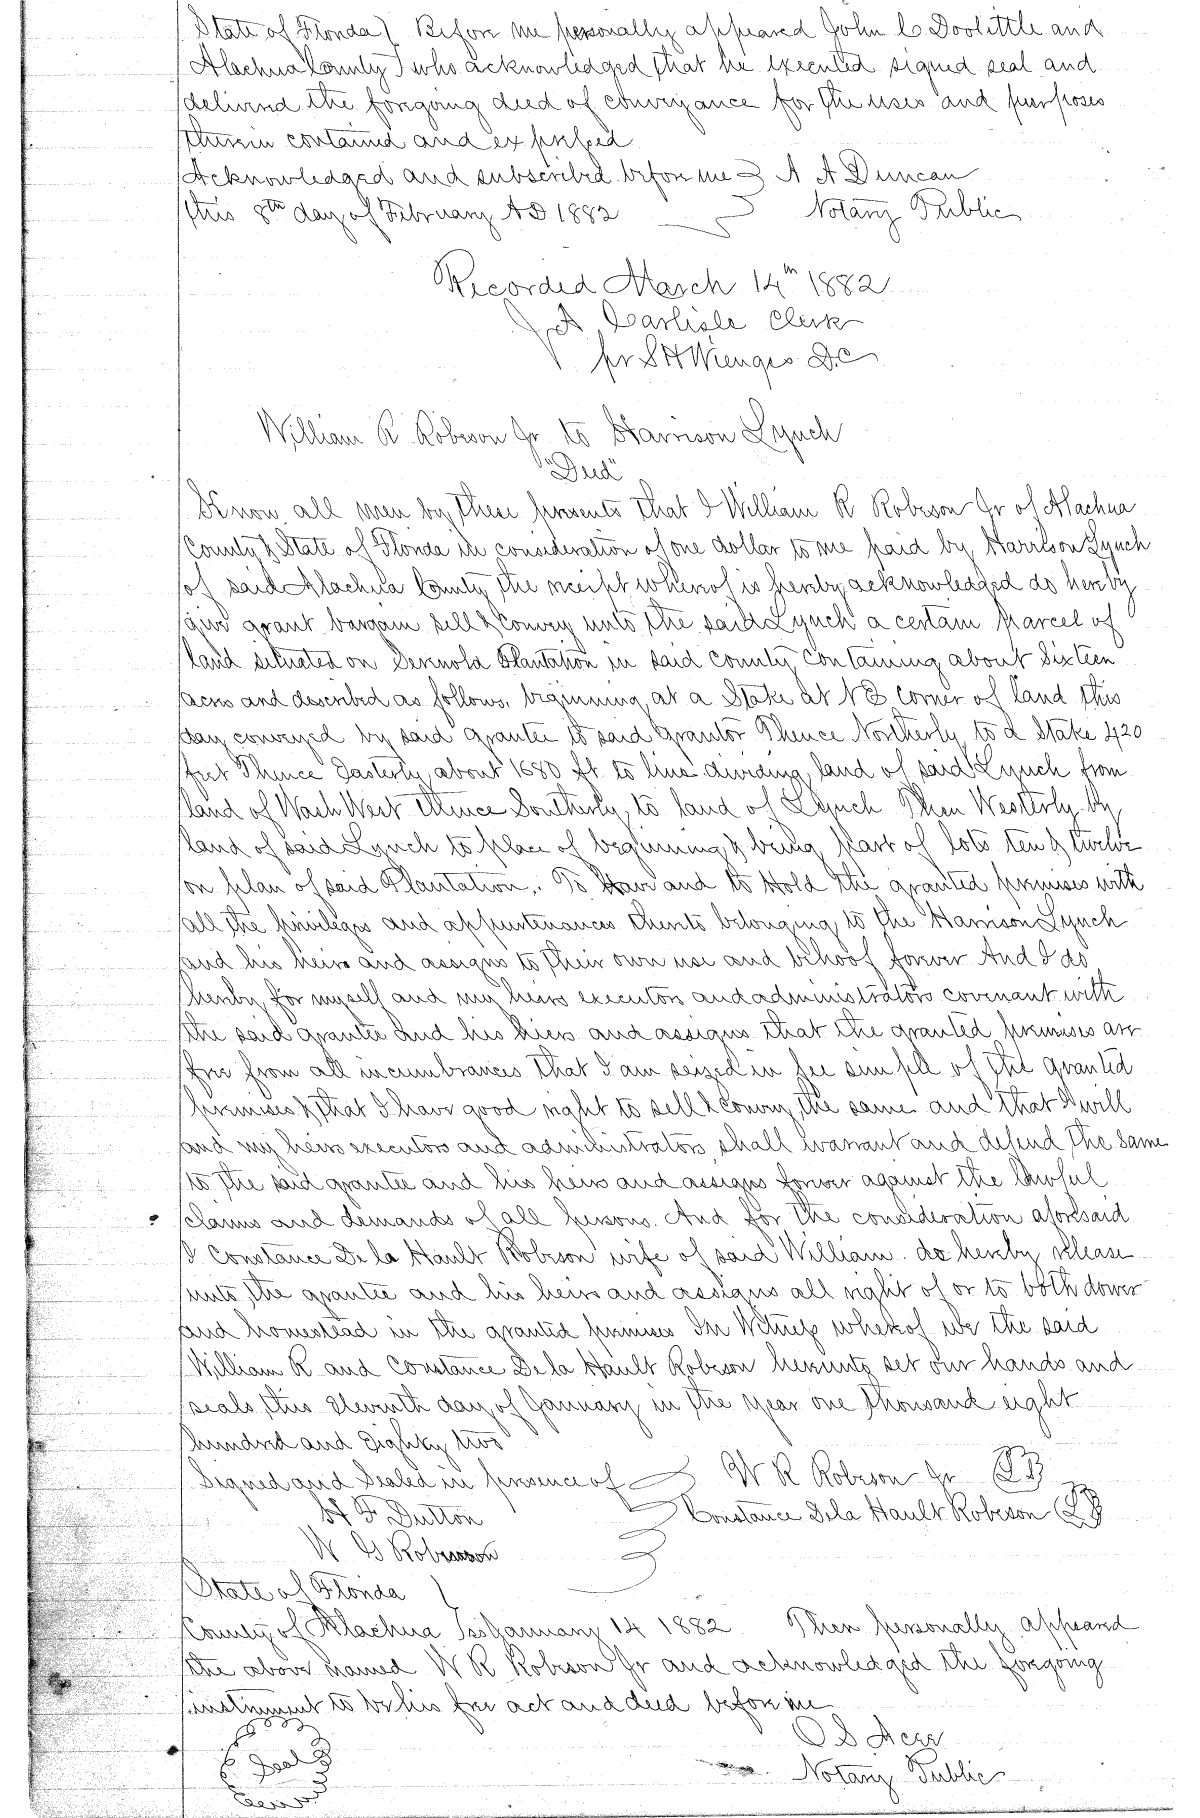 State of Florida } Before me personally appeared John C Doolittle and
Alachua County } who acknowledged that he executed signed seal and
delivered the foregoing deed of conveyance for the uses and purposes
therein contained and expressed
Acknowledged and subscribed before me } A A Duncan
this 8th day of February AD 1882 } Notary Public
Recorded March 14th 1882
J A Carlisle Clerk
pr S H Wienges D.C
William R Robeson Jr to Harrison Lynch
"Deed"
Know all men by these presents that I William R Robeson Jr of Alachua
County & State of Florida in consideration of one dollar to me paid by Harrison Lynch
of said Alachua County the receipt whereof is hereby acknowledged do hereby
give grant bargain sell & convey unto the said Lynch a certain parcel of
land situated on Serenola Plantation in said county containing about Sixteen
acres and described as follows, beginning at a Stake at N E corner of land this
day conveyed by said grantee to said grantor Thence Northerly to a Stake 420
feet Thence Easterly about 1680 ft to line dividing land of said Lynch from
land of Wash West thence Southerly to land of Lynch Then Westerly by
land of said Lynch to place of beginning & being part of lots ten & twelve
on plan of said Plantation. To Have and to Hold the granted premises with
all the privileges and appurtenances thereto belonging to the Harrison Lynch
and his heirs and assigns to their own use and behoof forever And I do
hereby for myself and my heirs executors and administrators covenant with
the said grantee and his hiers and assigns that the granted premises are
free from all incumbrances that I am seized in fee simple of the granted
premises & that I have good right to sell & convey the same and that I will
and my heirs executors and administrators shall warrant and defend the same
to the said grantee and his heirs and assigns forever against the lawful
claims and demands of all persons. And for the consideration aforesaid
I Constance De la Hault Robeson wife of said William do hereby release
unto the grantee and his heirs and assigns all right of or to both dower
and homestead in the granted premises In Witness whereof we the said
William R and Constance De la Hault Robeson hereunto set our hands and
seals this Eleventh day of January in the year one thousand eight
hundred and Eighty two
Signed and Sealed in presence of } W R Robeson Jr
H F Dutton } Constance De la Hault Robeson
W G Robinson
State of Florida }
County of Alachua } ss January 14 1882 Then personally appeared
the above named W R Robeson Jr and acknowledged the foregoing
instrument to be his free act and deed before me
Seal
Notary Public